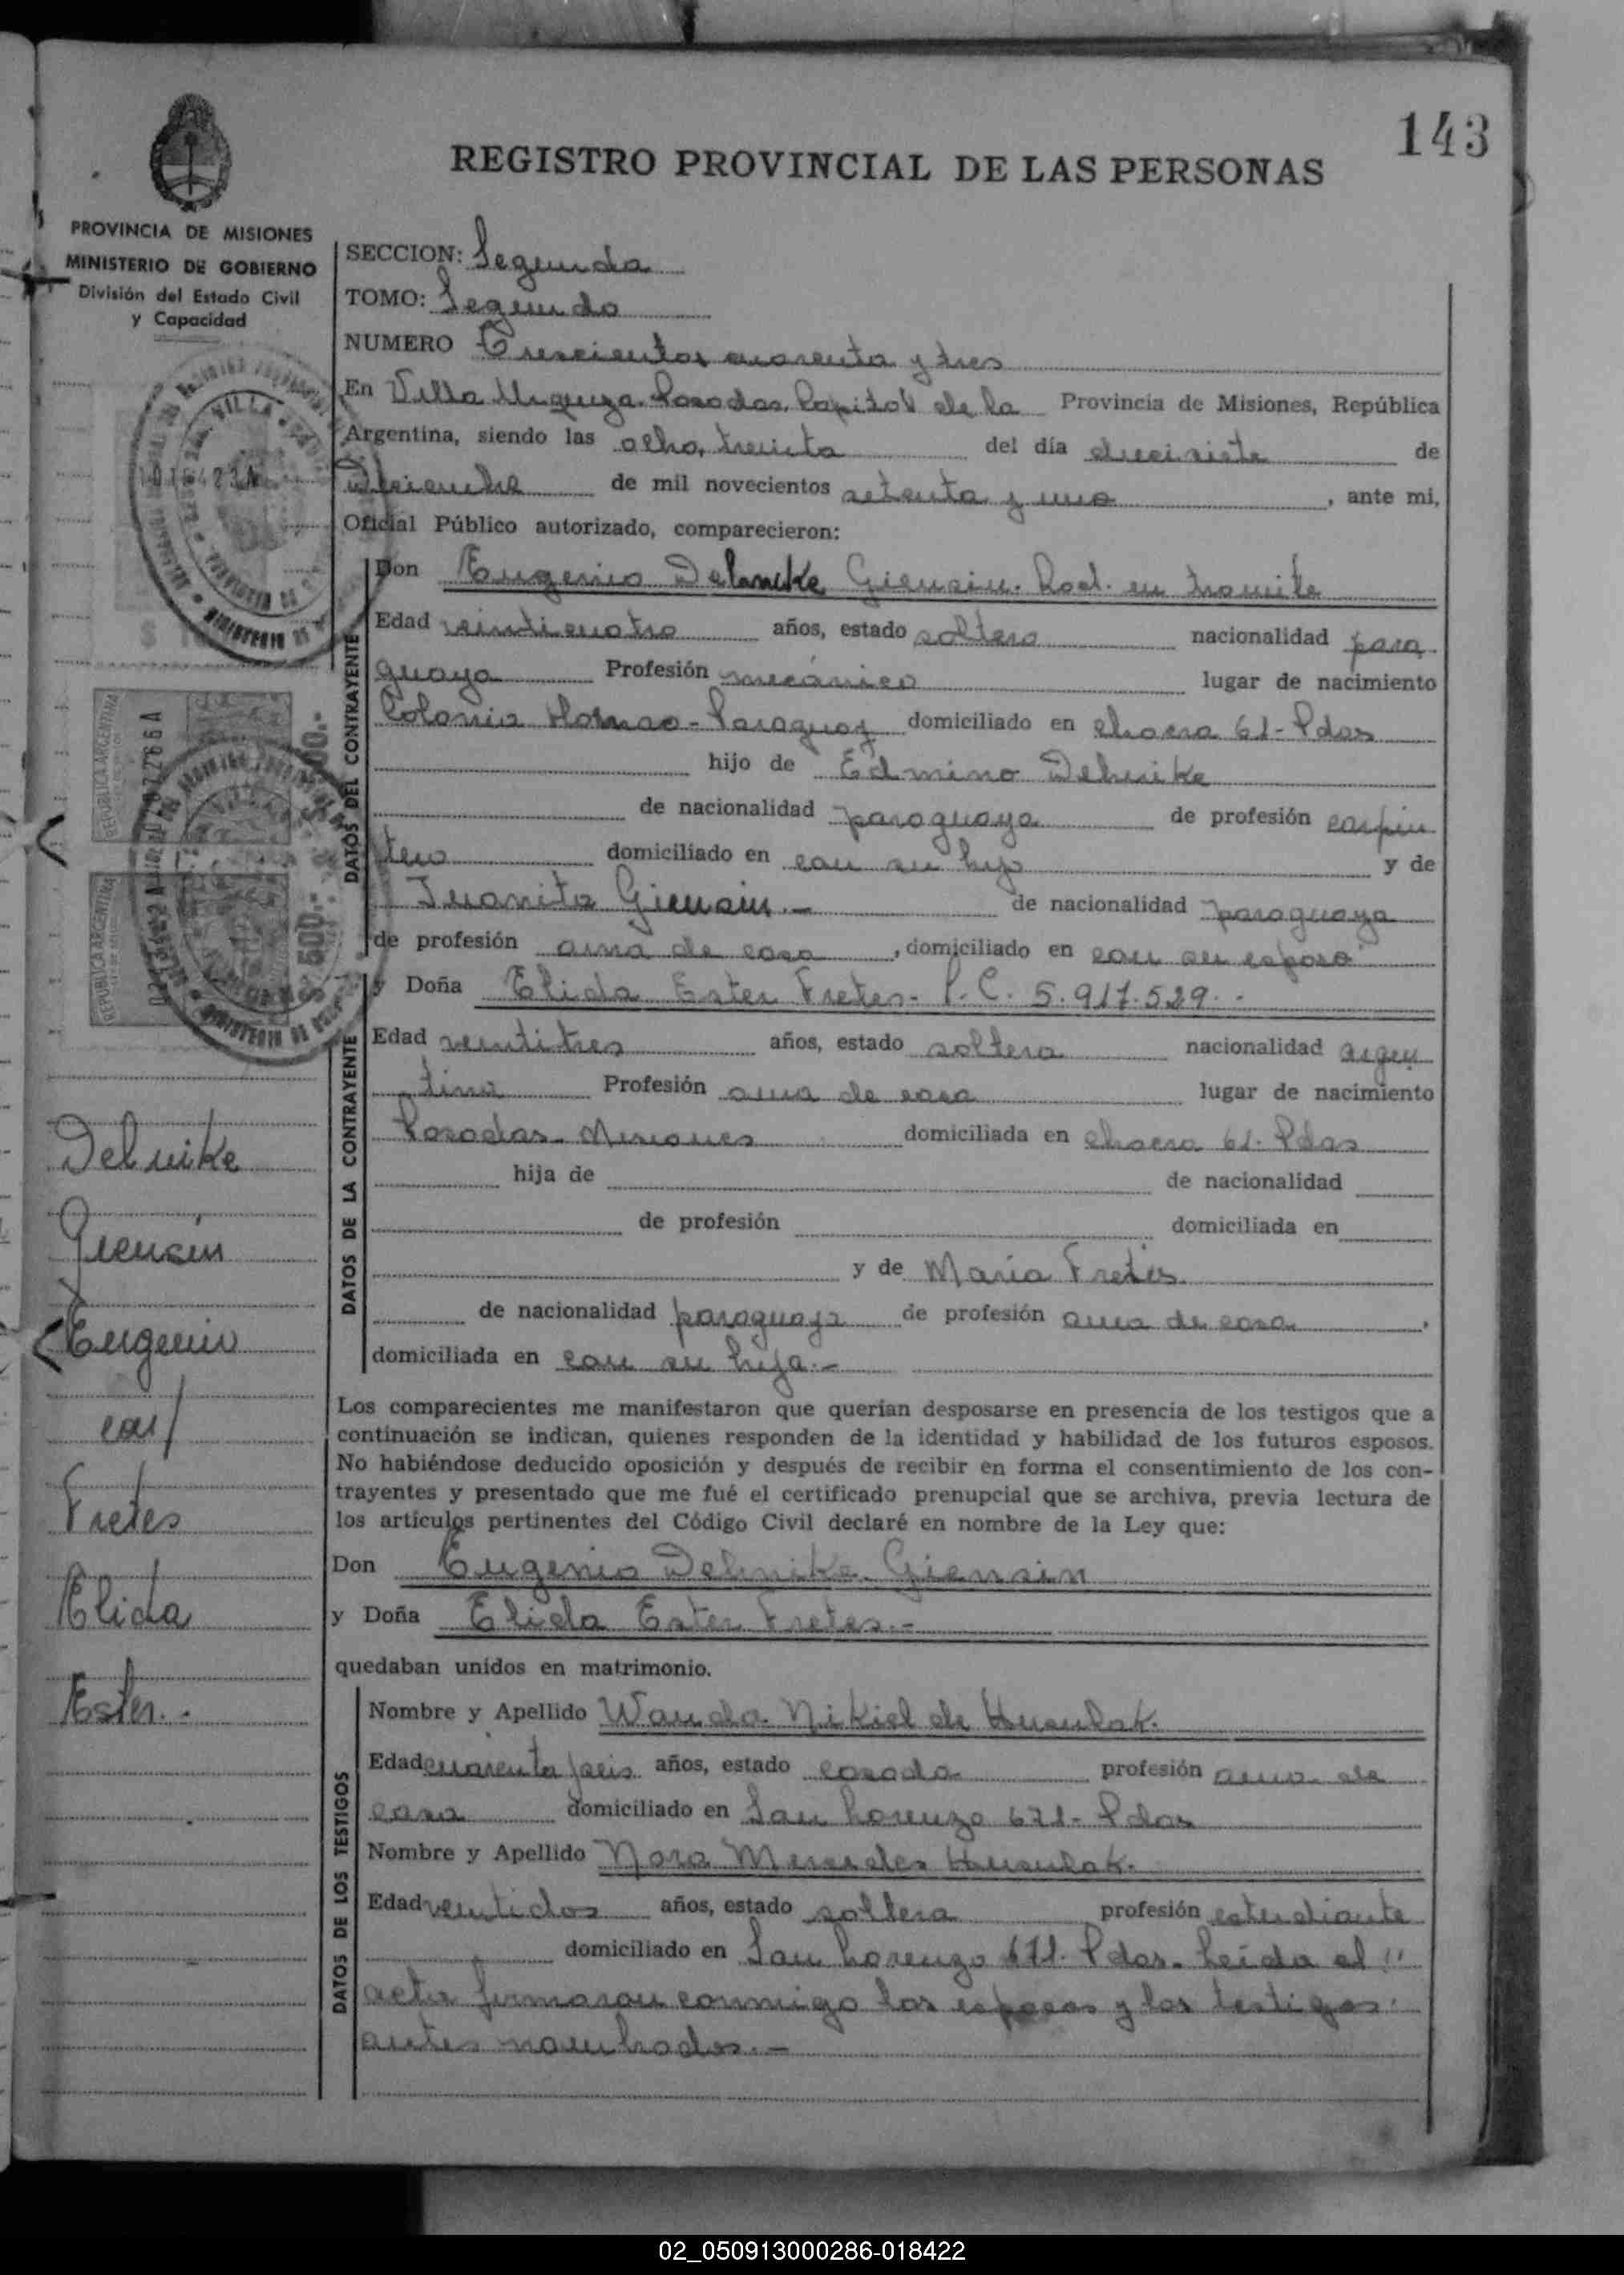 143
REGISTRO PROVINCIAL DE LAS PERSONAS
PROVINCIA DE MISIONES
MINISTERIO DE GOBIERNO
División del Estado Civil
y Capacidad
SECCION: Segunda
TOMO: Segundo
NUMERO Trescientos cuarenta y tres
En Villa Urquiza. Posadas, Capital de la Provincia de Misiones, República
Argentina, siendo las ocho, treinta del día diecisiete de
Diciembre de mil novecientos setenta y uno, ante mi,
Oficial Público autorizado, comparecieron:
DATOS DEL CONTRAYENTE
Don Eugenio Delnike Giensin. Rad. en tramite
Edad veinticuatro años, estado soltero nacionalidad para
guaya Profesión mecánico lugar de nacimiento
Colonia - Paraguay domiciliado en chacra 61- Pdas
hijo de Edmino Delnike
de nacionalidad paraguaya de profesión carpin
tero domiciliado en con su hijo y de
Juanita Giensin.- de nacionalidad paraguaya
de profesión ama de casa, domiciliado en con su esposo
y Doña Elida Ester Fretes- L.C. 5.917.529.-
DATOS DE LA CONTRAYENTE
Edad veintitres años, estado soltera nacionalidad argen
tina Profesión ama de casa lugar de nacimiento
Posadas- Misiones domiciliada en chacra 61- Pdas
hija de de nacionalidad
de profesión domiciliada en
y de María Fretes
de nacionalidad paraguaya de profesión ama de casa,
domiciliada en con su hija.-
Los comparecientes me manifestaron que querían desposarse en presencia de los testigos que a
continuación se indican, quienes responden de la identidad y habilidad de los futuros esposos.
No habiéndose deducido oposición y después de recibir en forma el consentimiento de los con-
trayentes y presentado que me fué el certificado prenupcial que se archiva, previa lectura de
los artículos pertinentes del Código Civil declaré en nombre de la Ley que:
Don Eugenio Delnike Giensin
y Doña Elida Ester Fretes.-
quedaban unidos en matrimonio.
DATOS DE LOS TESTIGOS
Nombre y Apellido Wanda Nikiel de Husulak.
Edad cuarenta y seis años, estado casada profesión ama de
casa domiciliado en San Lorenzo 671- Pdas
Nombre y Apellido Nora Mercedes Husulak.
Edad veintidos años, estado soltera profesión estudiante
domiciliado en San Lorenzo 671. Pdas. Leída el "
acta firmaron conmigo los esposos y los testigos
antes nombrados.-
Delnike
Giensin
Eugenio
con/
Fretes
Elida
Ester.-
REPUBLICA ARGENTINA
REPUBLICA ARGENTINA
$ 500.-
02_050913000286-018422